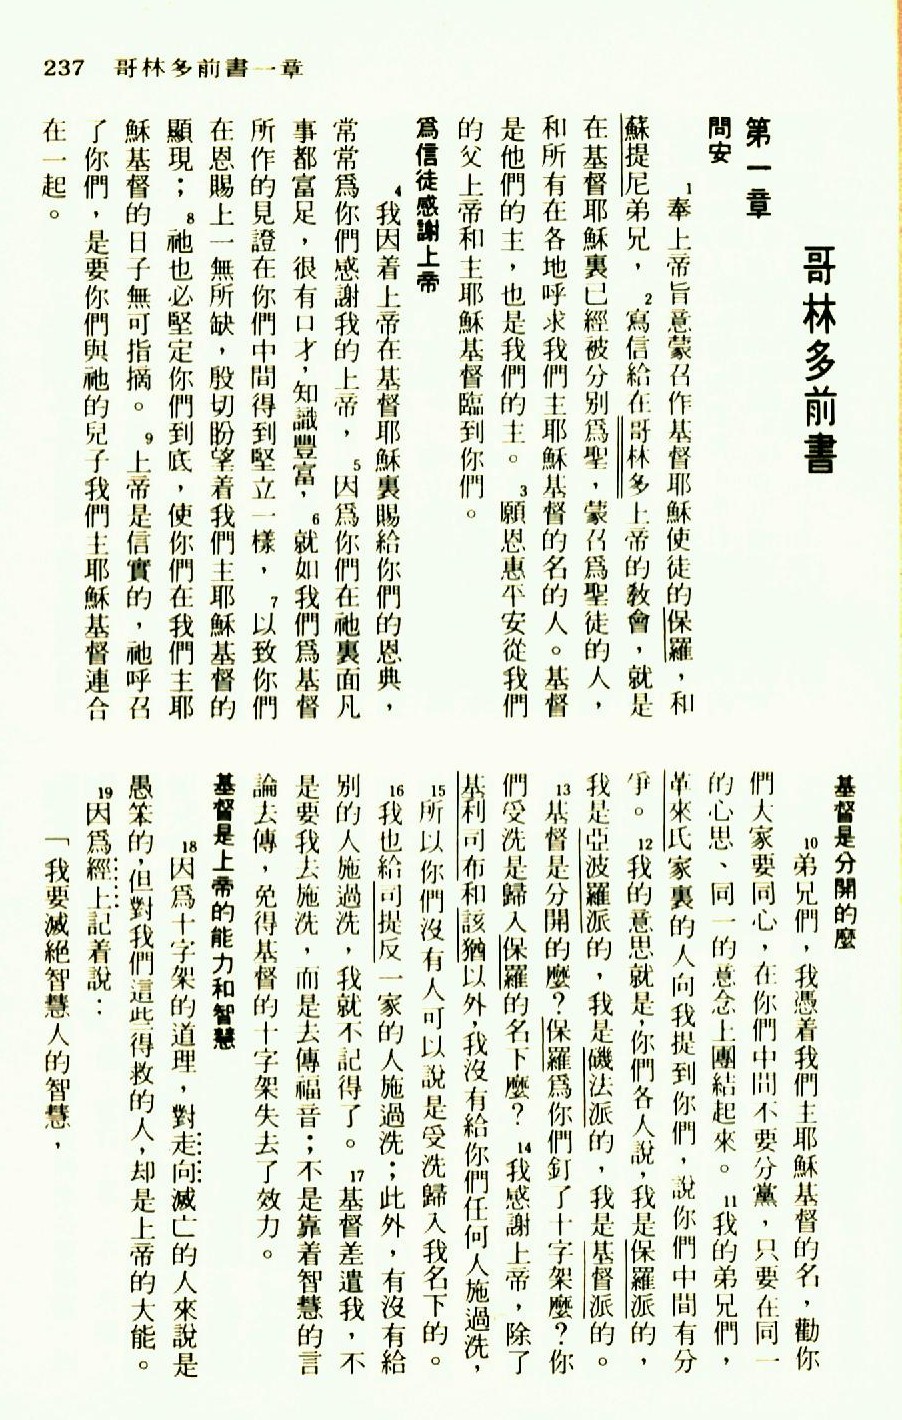 237 哥林多前書一章
哥林多前書
第一章
問安
1奉上帝旨意蒙召作基督耶穌使徒的保羅，和
蘇提尼弟兄，2寫信給在哥林多上帝的教會，就是
在基督耶穌裏已經被分別爲聖，蒙召爲聖徒的人，
和所有在各地呼求我們主耶穌基督的名的人。基督
是他們的主，也是我們的主。3願恩惠平安從我們
的父上帝和主耶穌基督臨到你們。
爲信徒感謝上帝
4我因着上帝在基督耶穌裏賜給你們的恩典，
常常爲你們感謝我的上帝，5因爲你們在祂裏面凡
事都富足，很有口才，知識豐富，6就如我們爲基督
所作的見證在你們中間得到堅立一樣，7以致你們
在恩賜上一無所缺，殷切盼望着我們主耶穌基督的
顯現；8祂也必堅定你們到底，使你們在我們主耶
穌基督的日子無可指摘。9上帝是信實的，祂呼召
了你們，是要你們與祂的兒子我們主耶穌基督連合
在一起。
基督是分開的麼
10弟兄們，我憑着我們主耶穌基督的名，勸你
們大家要同心，在你們中間不要分黨，只要在同一
的心思、同一的意念上團結起來。11我的弟兄們，
革來氏家裏的人向我提到你們，說你們中間有分
爭。12我的意思就是，你們各人說，我是保羅派的，
我是亞波羅派的，我是磯法派的，我是基督派的。
13基督是分開的麼？保羅爲你們釘了十字架麼？你
們受洗是歸入保羅的名下麼？14我感謝上帝，除了
基利司布和該猶以外，我沒有給你們任何人施過洗，
15所以你們沒有人可以說是受洗歸入我名下的。
16我也給司提反一家的人施過洗；此外，有沒有給
別的人施過洗，我就不記得了。17基督差遣我，不
是要我去施洗，而是去傳福音；不是靠着智慧的言
論去傳，免得基督的十字架失去了效力。
基督是上帝的能力和智慧
18因爲十字架的道理，對走向滅亡的人來說是
愚笨的，但對我們這些得救的人，却是上帝的大能。
19因爲經上記着說：
「我要滅絕智慧人的智慧，